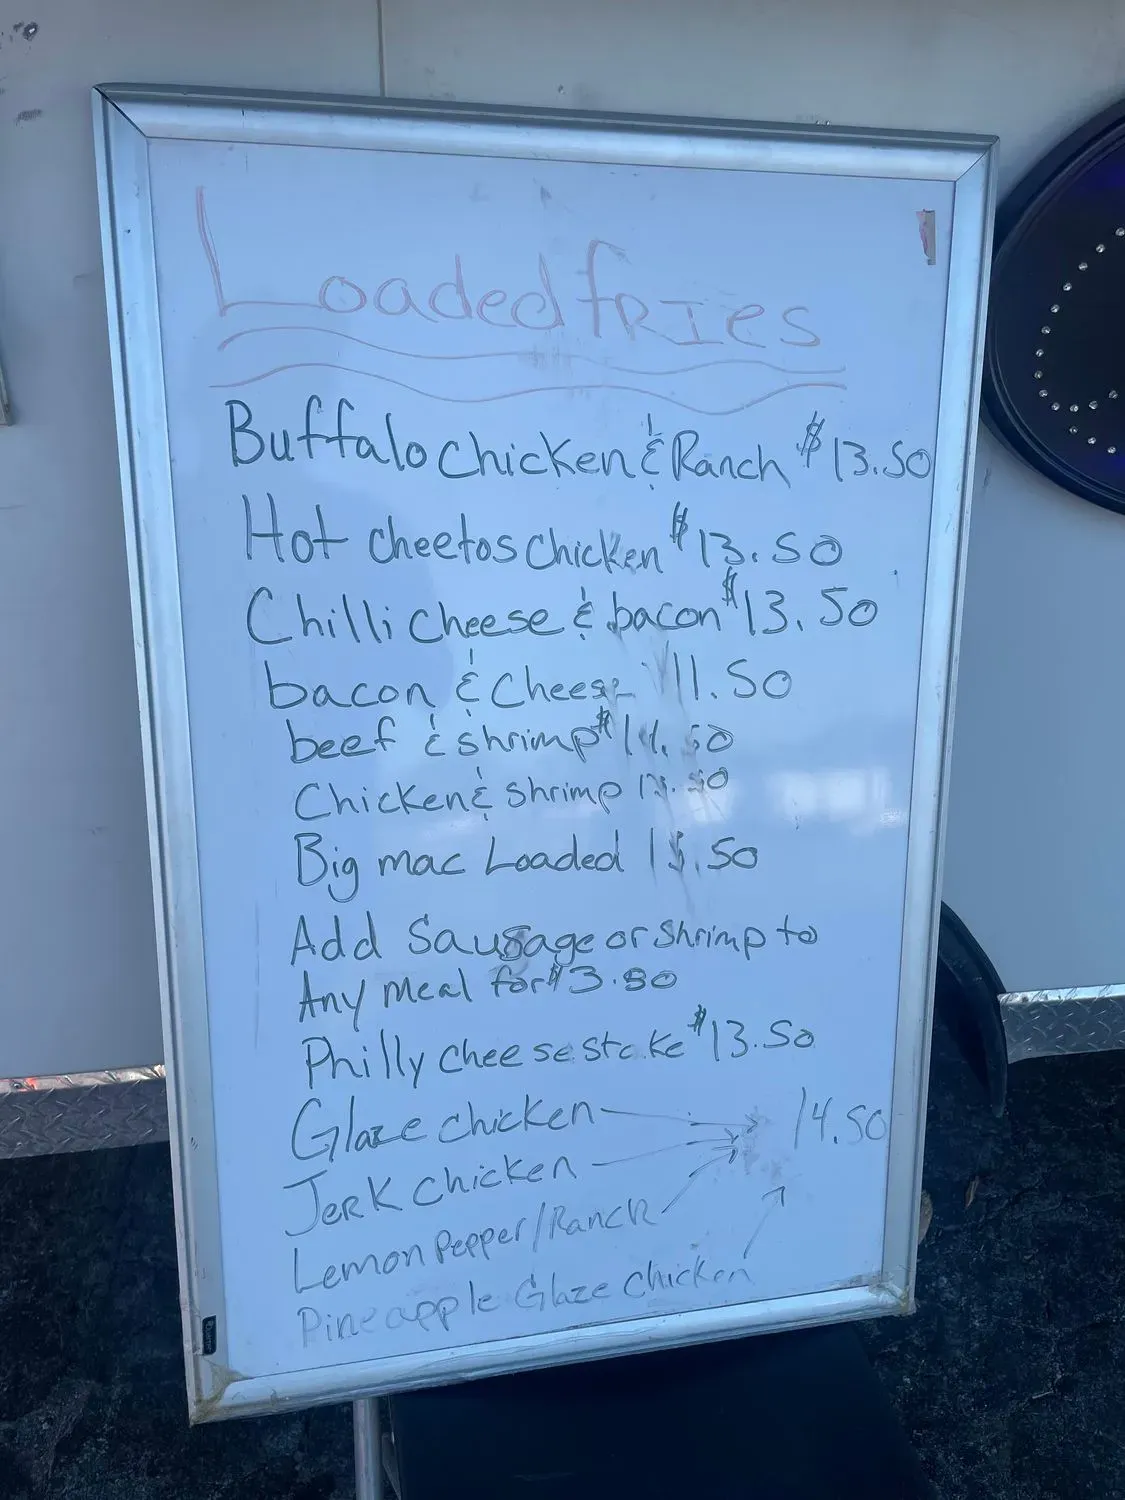 Loaded fRIes
Buffalo Chicken & Ranch $13.50
Hot cheetos Chicken $13.50
Chilli Cheese & bacon $13.50
bacon & Cheese 11.50
beef & shrimp $14.50
Chicken & shrimp
Big mac Loaded 15.50
Add Sausage or Shrimp to
Any meal for $3.80
Philly cheese stake $13.50
Glaze chicken 14.50
Jerk chicken
Lemon Pepper/Ranch
Pineapple Glaze chicken